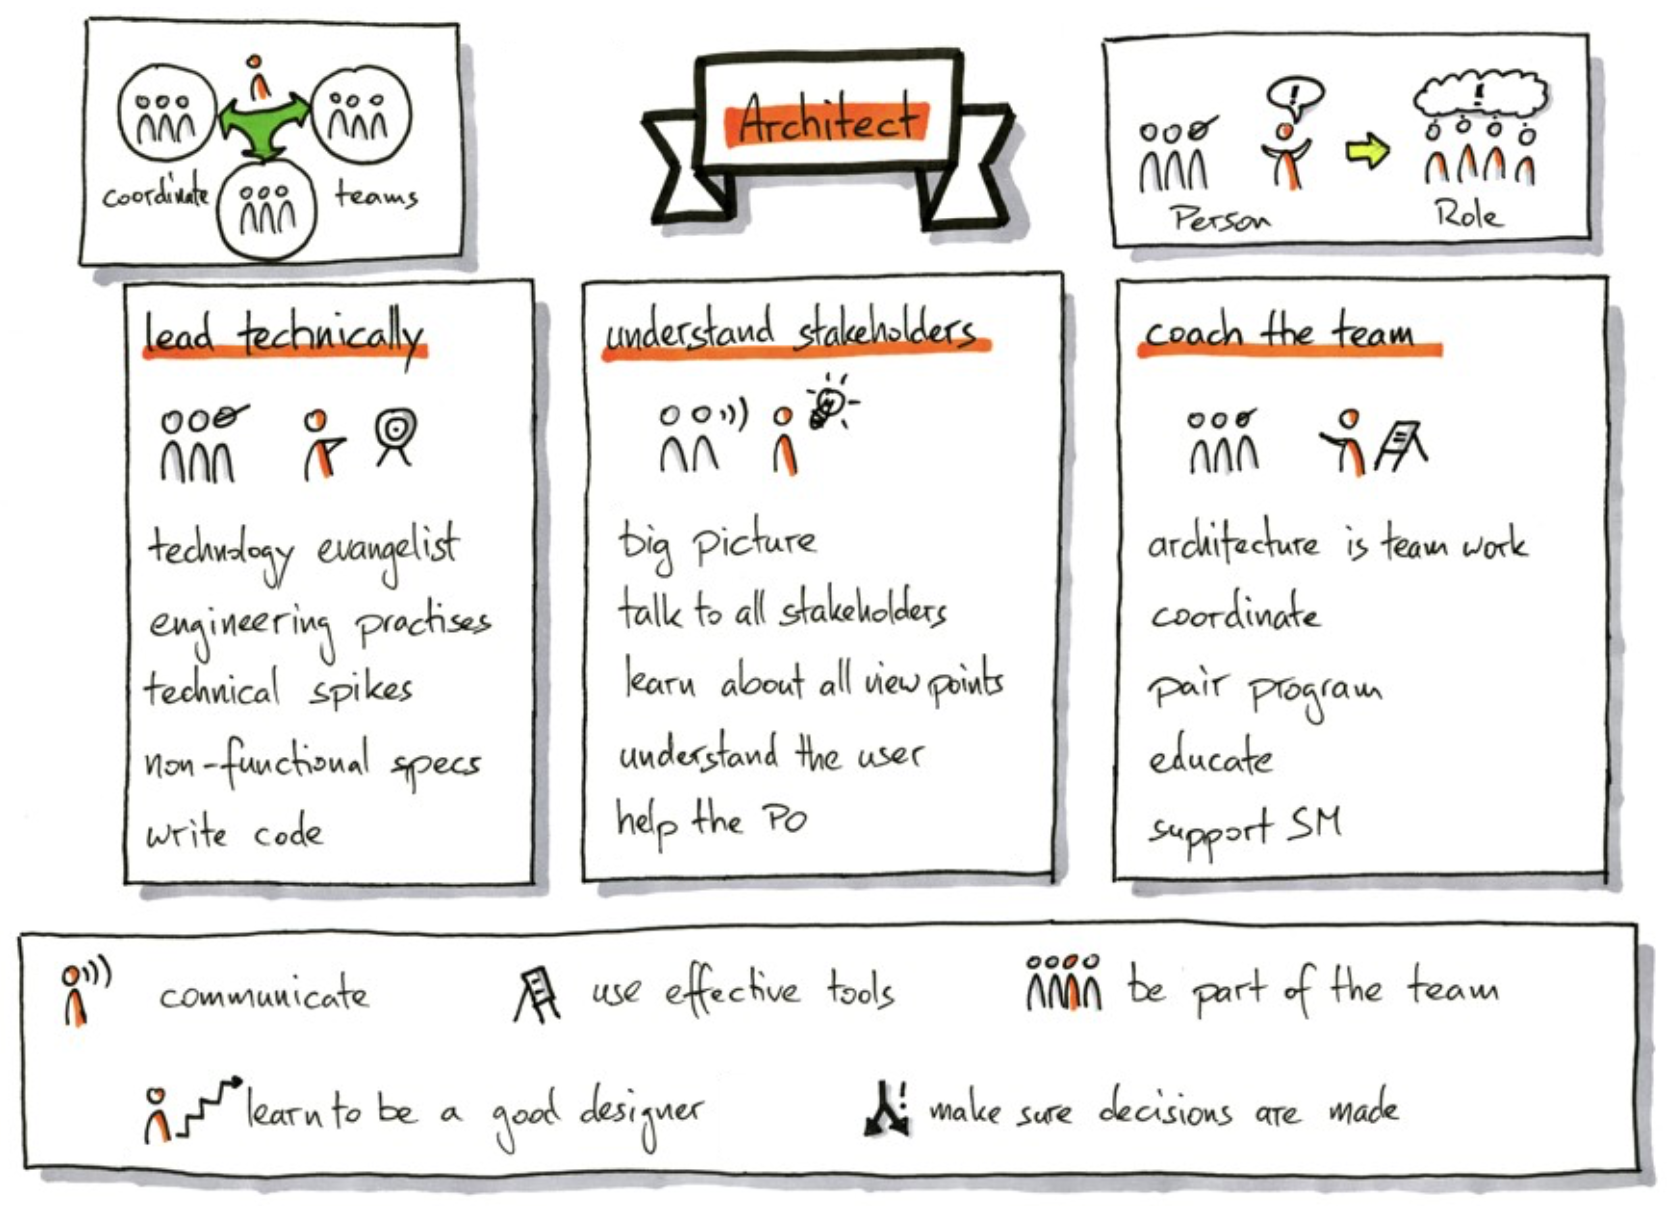 coordinate teams
Architect
!
!
Person
Role
lead technically
technology evangelist
engineering practises
technical spikes
non-functional specs
write code
understand stakeholders
big picture
talk to all stakeholders
learn about all view points
understand the user
help the PO
coach the team
architecture is team work
coordinate
pair program
educate
support SM
communicate
use effective tools
be part of the team
learn to be a good designer
! make sure decisions are made